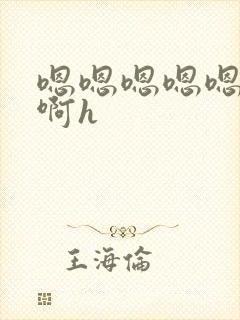 嗯嗯嗯嗯嗯
啊h
王海倫